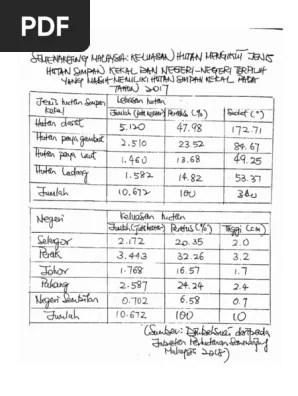 PDF
SEMENANJUNG MALAYSIA: KELUASAN HUTAN MENGIKUT JENIS
HUTAN SIMPAN KEKAL DAN NEGERI-NEGERI TERPILIH
YANG MASIH MEMILIKI HUTAN SIMPAN KEKAL PADA
TAHUN 2017
Jenis hutan Simpan Kekal Keluasan hutan
Jumlah (juta hektar) Peratus (%) Sudut (°)
Hutan darat 5.120 47.98 172.71
Hutan paya gambut 2.510 23.52 84.67
Hutan paya laut 1.460 13.68 49.25
Hutan Ladang 1.582 14.82 53.37
Jumlah 10.672 100 360
Negeri Keluasan hutan
Jumlah (juta hektar) Peratus (%) Tinggi (cm)
Selangor 2.172 20.35 2.0
Perak 3.443 32.26 3.2
Johor 1.768 16.57 1.7
Pahang 2.587 24.24 2.4
Negeri Sembilan 0.702 6.58 0.7
Jumlah 10.672 100 10
(Sumber: Diubahsuai daripada
Jabatan Perhutanan Semenanjung
Malaysia 2018)